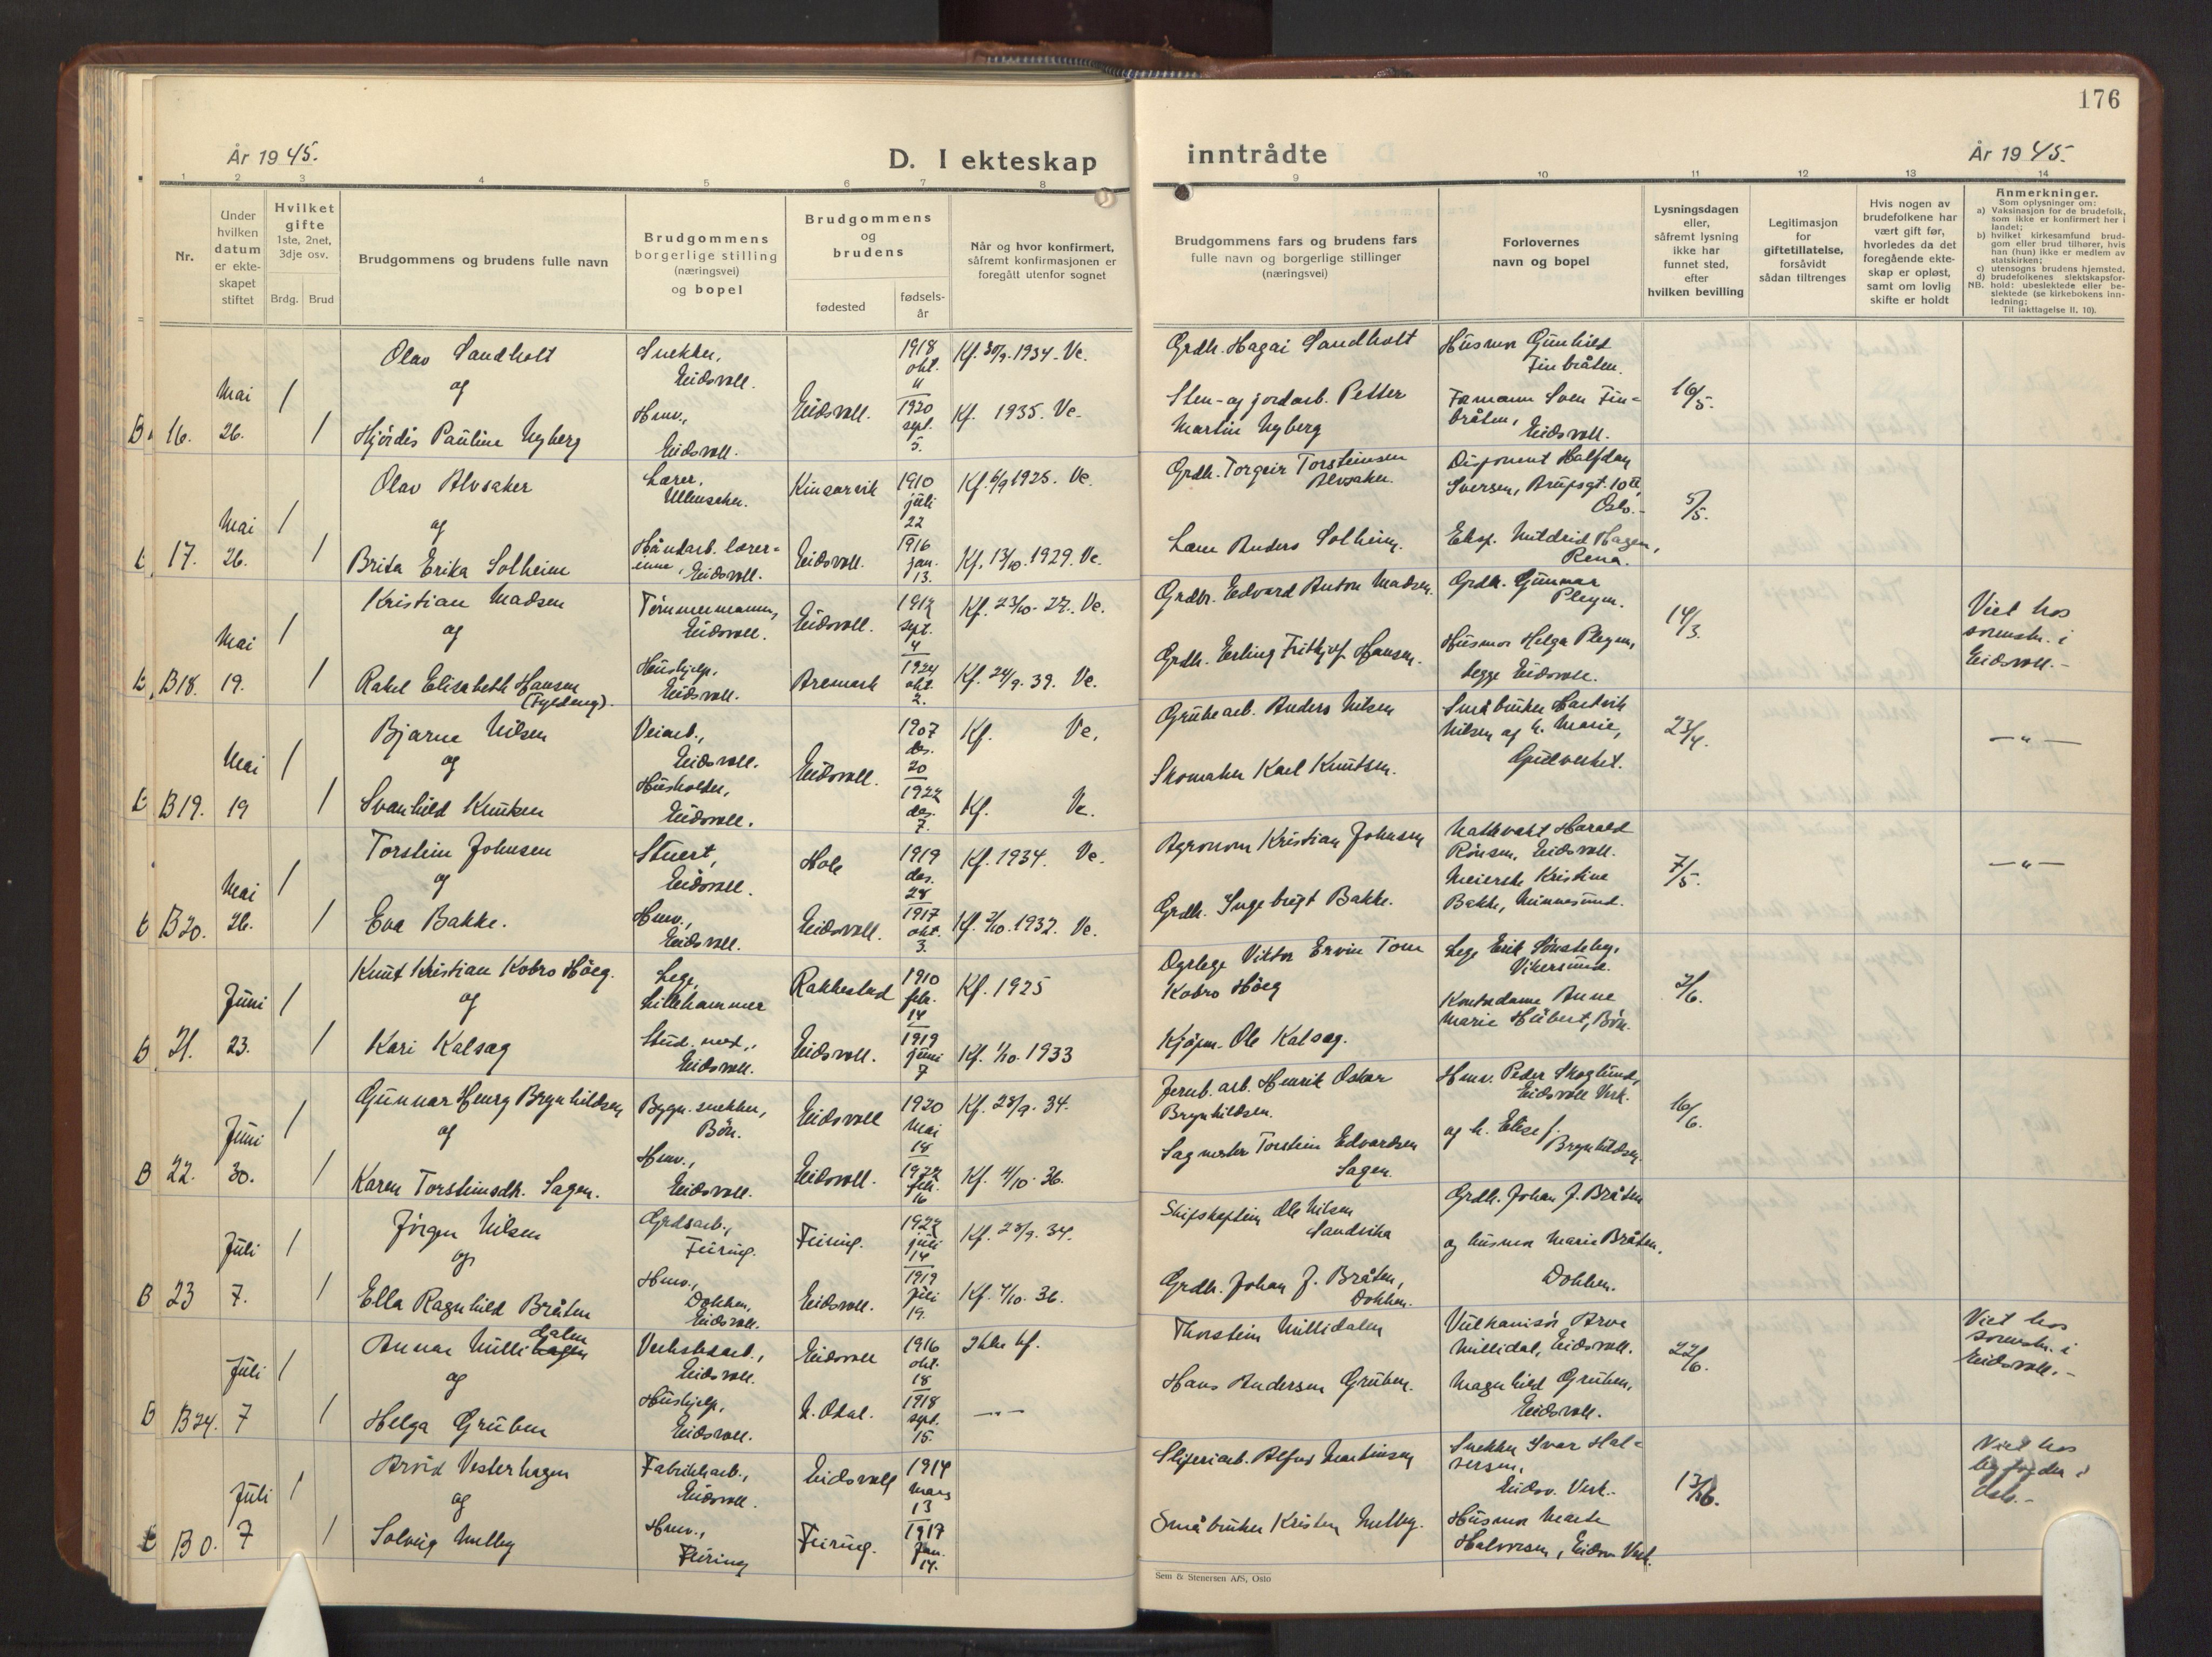 176
År 1945.
D. I ekteskap
inntrådte
År 1945.
1 2 3 4 5 6 7 8
9 10 11 12 13 14
Nr.
Under hvilken datum er ekteskapet stiftet
Hvilket gifte
1ste, 2net, 3dje osv.
Brdg. Brud
Brudgommens og brudens fulle navn
Brudgommens borgerlige stilling (næringsvei) og bopel
Brudgommens og brudens
fødested
fødselsår
Når og hvor konfirmert, såfremt konfirmasjonen er foregått utenfor sognet
Brudgommens fars og brudens fars fulle navn og borgerlige stillinger (næringsvei)
Forlovernes navn og bopel
Lysningsdagen eller, såfremt lysning ikke har funnet sted, efter hvilken bevilling
Legitimasjon for giftetillatelse, forsåvidt sådan tiltrenges
Hvis nogen av brudefolkene har vært gift før, hvorledes da det foregående ekteskap er opløst, samt om lovlig skifte er holdt
Anmerkninger.
Som oplysninger om:
a) Vaksinasjon for de brudefolk, som ikke er konfirmert her i landet;
b) hvilket kirkesamfund brudgom eller brud tilhører, hvis han (hun) ikke er medlem av statskirken;
c) utensogns brudens hjemsted.
d) brudefolkenes slektskapsforhold: ubeslektede eller beslektede (se kirkebokens innledning;
NB.
Til iakttagelse II. 10).
B 16. Mai 26. 1 1
Olav Sandholt
og
Hjördis Pauline Nyberg
Snekker, Eidsvoll.
Hmv., Eidsvoll.
Eidsvoll.
1918 okt. 11
1920 sept. 5.
Kf. 30/9. 1934. Ve.
Kf. 1935. Ve.
Grdb. Hagai Sandholt
Sten- og jordarb. Petter
Martin Nyberg
Husmor Gunhild
Finbråten.
Formann Sven Fin-
bråten,
Eidsvoll.
16/5.
17. Mai 26. 1 1
Olav Alvsaker
og
Brita Erika Solheim
Lærer,
Ullensaker.
Håndarb. lærer-
inne, Eidsvoll.
Kinsarvik
Eidsvoll.
1910 juli 22
1916 jan. 13.
Kf. 6/9 1925. Ve.
Kf. 13/10. 1929. Ve.
Grdb. Torgeir Torsteinsen
Alvsaker.
Lærer Anders Solheim.
Disponent Halfdan
Iversen,
Oslo.
Eksp. Mildrid Hagen,
Rena.
5/5.
B 18. Mai 19. 1 1
Kristian Madsen
og
Rakel Elisabeth Hansen
(Fyldeng).
Tømmermann,
Eidsvoll.
Hushjelp,
Eidsvoll.
Eidsvoll.
Aremark
1912 sept. 4
1924 okt. 2.
Kf. 23/10. 27. Ve.
Kf. 24/9. 39. Ve.
Grdbr. Edvard Anton Madsen.
Grdb. Erling Fritkjof Hansen.
Grdb. Gunnar
Pleym.
Husmor Helga Pleym,
begge Eidsvoll.
14/3.
Viet hos
sorenskr. i
Eidsvoll.-
B 19. Mai 19 1 1
Bjarne Nilsen
og
Svanhild Knutsen
Veiarb.,
Eidsvoll.
Husholder,
Eidsvoll.
Eidsvoll.
1907 des. 20
1922 des. 7.
Kf. Ve.
Kf. Ve.
Grubearb. Anders Nilsen
Skomaker Karl Knutsen.
Småbruker Hartvik
Nilsen og h. Marie,
Gullverket.
23/4.
— " —
B 20. Mai 26. 1 1
Torstein Johnsen
og
Eva Bakke.
Stuert,
Eidsvoll.
Hmv.,
Eidsvoll.
Hole
Eidsvoll.
1919 des. 28
1917 okt. 3.
Kf. 1934. Ve.
Kf. 2/10. 1932. Ve.
Agronom Kristian Johnsen
Grdb. Ingebrigt Bakke.
Nattvakt Harald
Rønsen, Eidsvoll.
Meierske Kristine
Bakke, Minnesund.
7/5.
— " —
B 21. Juni 23. 1 1
Knut Kristian Kobro Höeg.
og
Kari Kalsæg
Lege,
Lillehammer
Stud. med.,
Eidsvoll.
Rakkestad
Eidsvoll.
1910 feb. 14
1919 juni 7
Kf. 1925
Kf. 1/10. 1933
Dyrlege Viktor Ervin Tom
Kobro Höeg
Kjøpm. Ole Kalsæg.
Lege Erik Sønsteby,
Vikersund.
Kontordame Anne
Marie Hubert, Bön.
2/6.
B 22. Juni 30. 1 1
Gunnar Henry Brynhildsen
og
Karen Torsteinsdtr. Sagen.
Bygn. snekker,
Bön.
Hmv.,
Eidsvoll.
Eidsvoll
Eidsvoll.
1920 mai 14
1922 feb. 16
Kf. 23/9. 34.
Kf. 4/10. 36.
Jernb. arb. Henrik Oskar
Brynhildsen.
Sagmester Torstein Edvardsen
Sagen.
Hmv. Peder Skoglund,
Eidsvoll Verk.
og h. Elise f.
Brynhildsen.
16/6.
B 23 Juli 7. 1 1
Jörgen Nilsen
og
Ella Ragnhild Bråten
Grdsarb.,
Feiring.
Hmv.,
Dokken,
Eidsvoll.
Feiring.
Eidsvoll.
1922 juli 14
1919 juli 19.
Kf. 23/9. 34.
Kf. 4/10. 36.
Skipskaptein Ole Nilsen
Sandvika
Grdb. Johan J. Bråten,
Dokken.
Grdb. Johan J. Bråten
og husmor Marie Bråten,
Dokken.
B B 24. Juli 7 1 1
Annar Millidalen
og
Helga Gruben
Verkstedarb.,
Eidsvoll.
Hushjelp,
Eidsvoll.
Eidsvoll
N. Odal.
1916 okt. 18
1918 sept. 15.
Ikke kf.
— " —
Thorstein Millidalen
Hans Andersen Gruben.
Vulkanisör Arve
Millidal, Eidsvoll.
Magnhild Gruben,
Eidsvoll.
22/6.
Viet hos
sorenskr. i
Eidsvoll.-
B 0. Juli 7 1 1
Arvid Vesterhagen
og
Solveig Melby
Fabrikkarb.,
Eidsvoll.
Hmv.,
Feiring
Eidsvoll
Feiring.
1914 mars 13
1917 jan. 14.
Sliperiarb. Alfred Martinsen
Småbruker Kristen Melby.
Snekker Ivar Hal-
vorsen,
Eidsv. Verk.
Husmor Marte
Halvorsen, Eidsv. Verk.
13/6.
Viet hos
byfogden i
Oslo.-
Sem & Stenersen A/S, Oslo